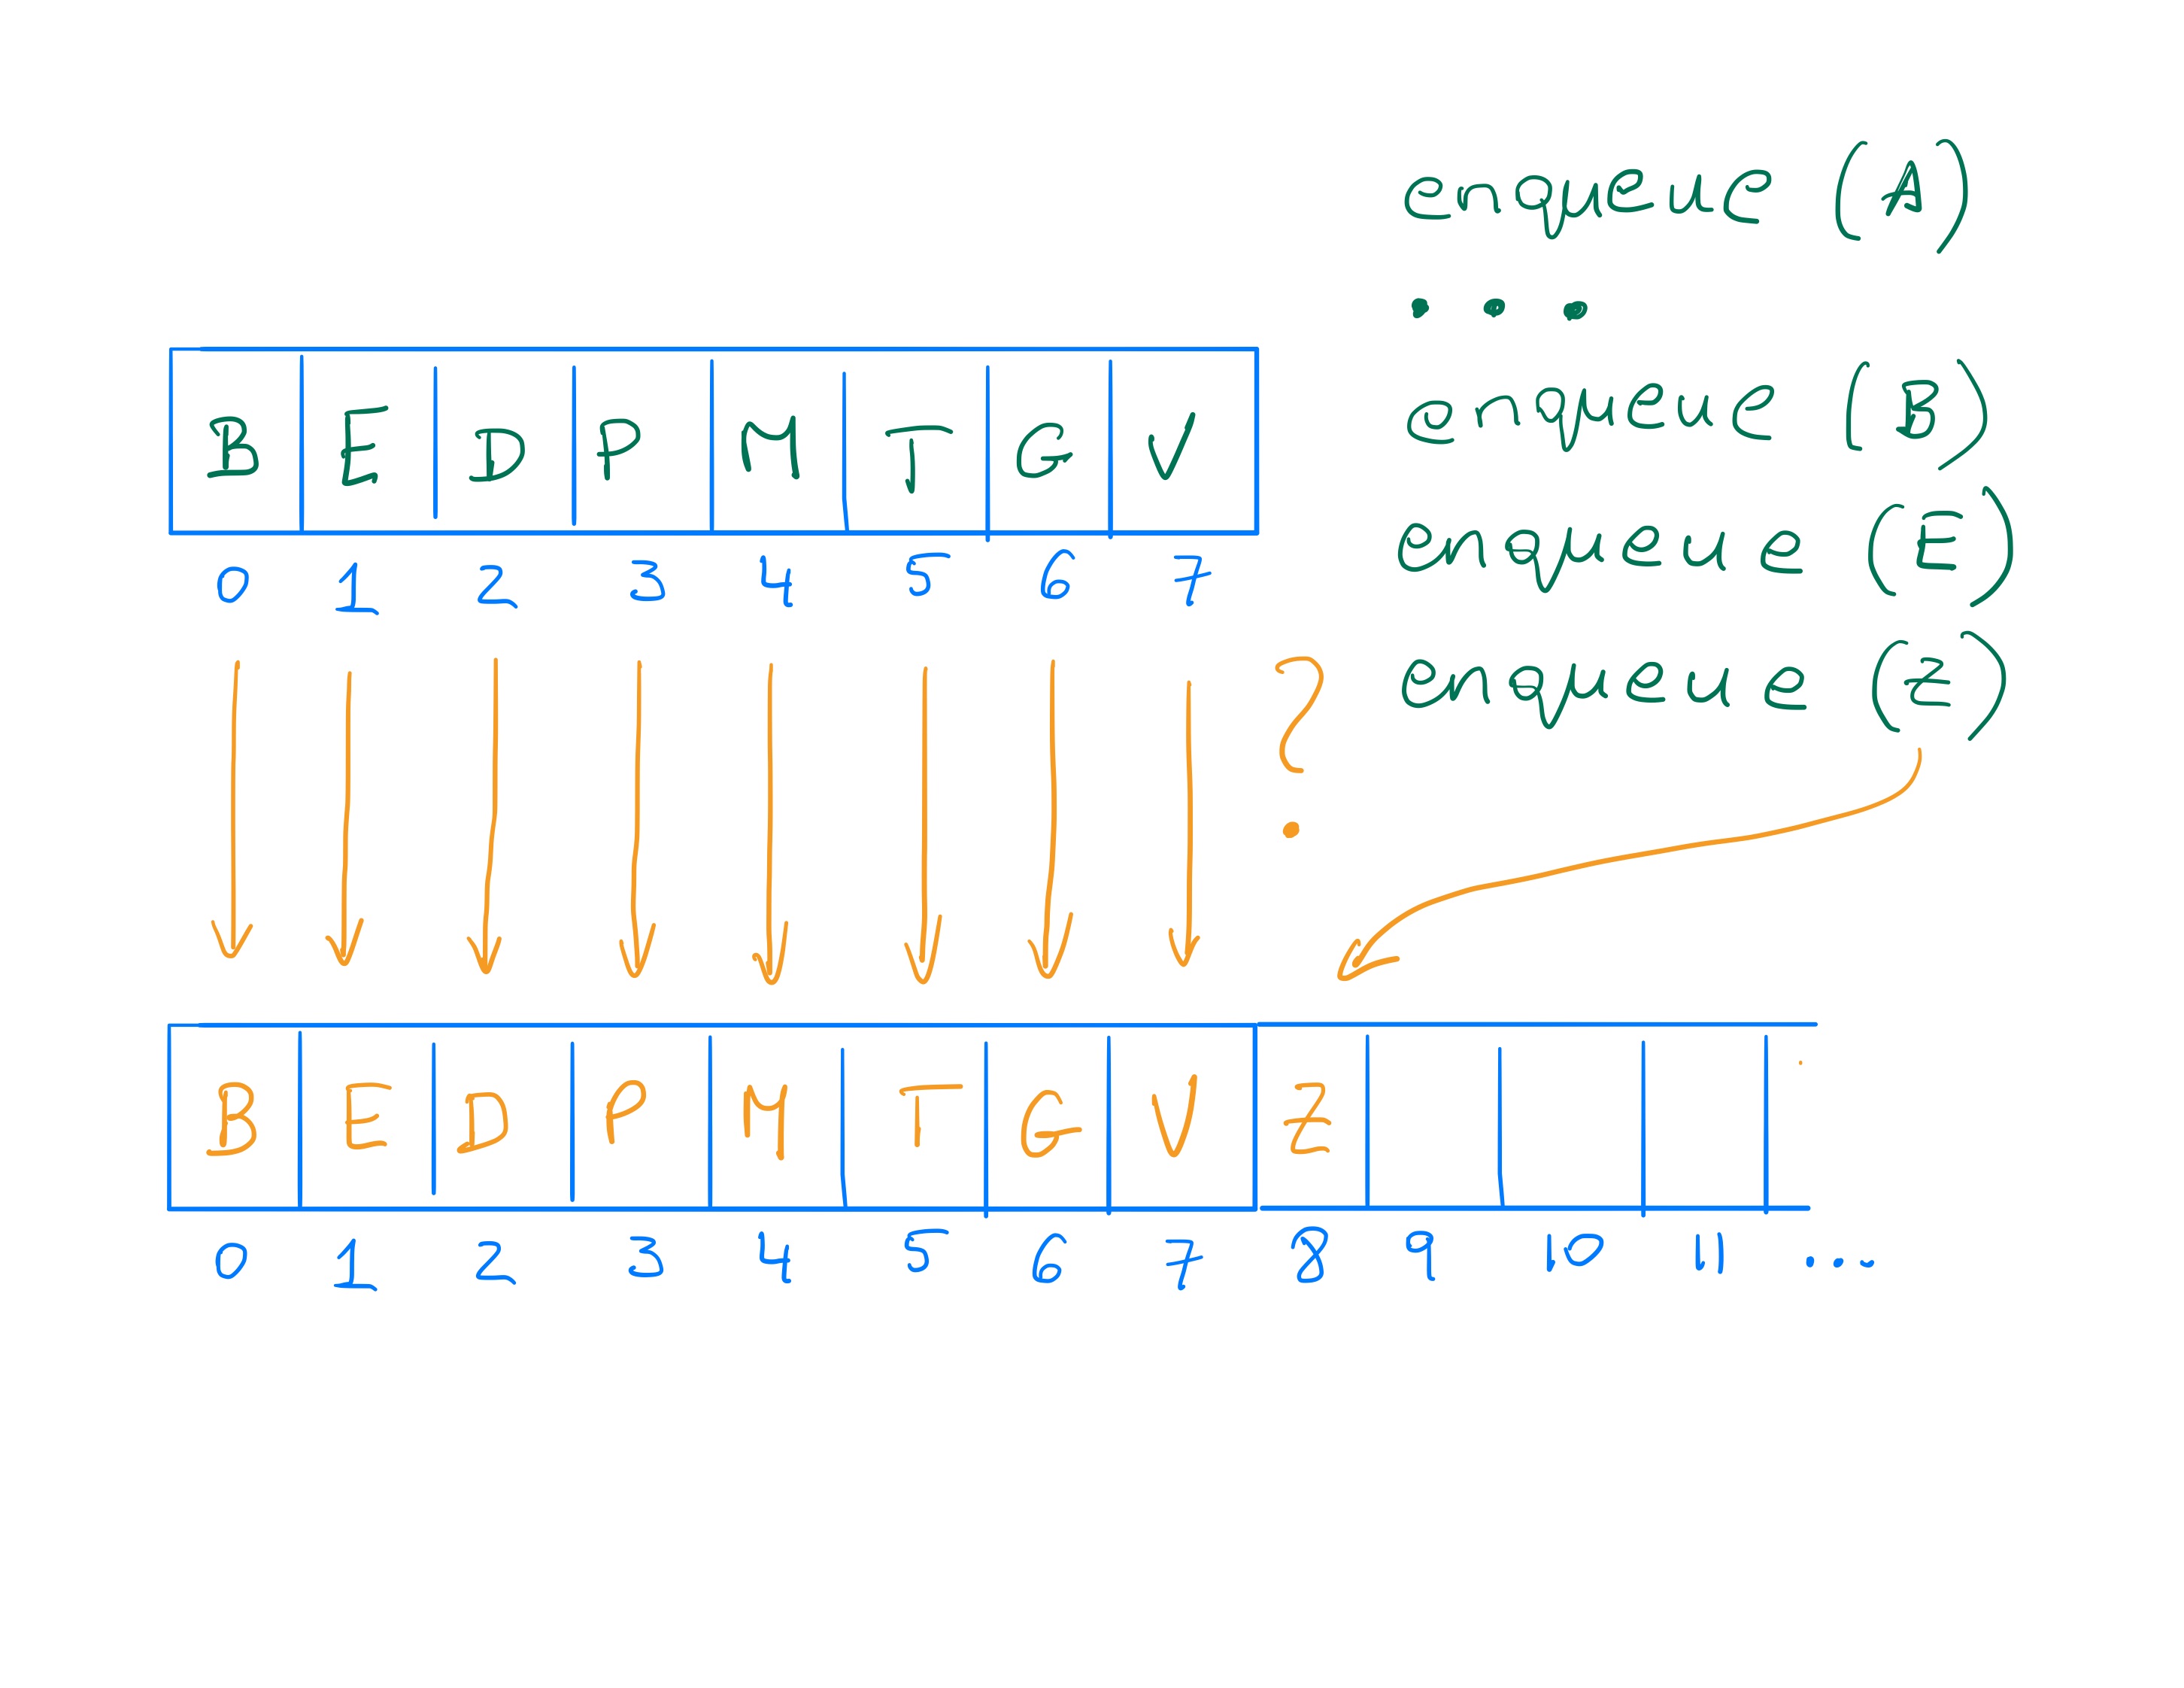 enqueue (A)
...
enqueue (B)
enqueue (E)
enqueue (Z)
B E D P M T G V
0 1 2 3 4 5 6 7
?
B E D P M T G V Z
0 1 2 3 4 5 6 7 8 9 10 11 ...